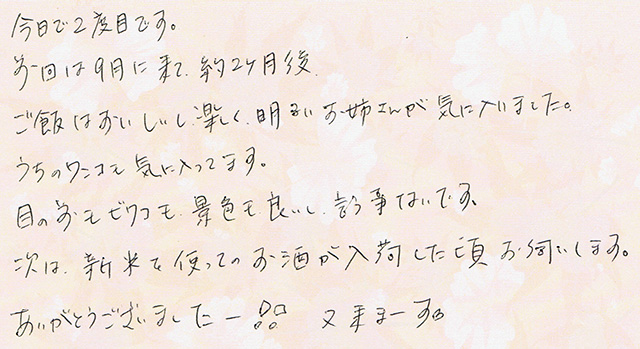 今日で2度目です。
前回は9月に来て、約2ヶ月後、
ご飯はおいしいし、楽しく、明るいお姉さんが気に入りました。
うちのワンコも気に入ってます。
目の前もビワコも、景色も良いし、言う事ないです。
次は、新米を使ってのお酒が入荷した頃お伺いします。
ありがとうございましたー 又来まーす。